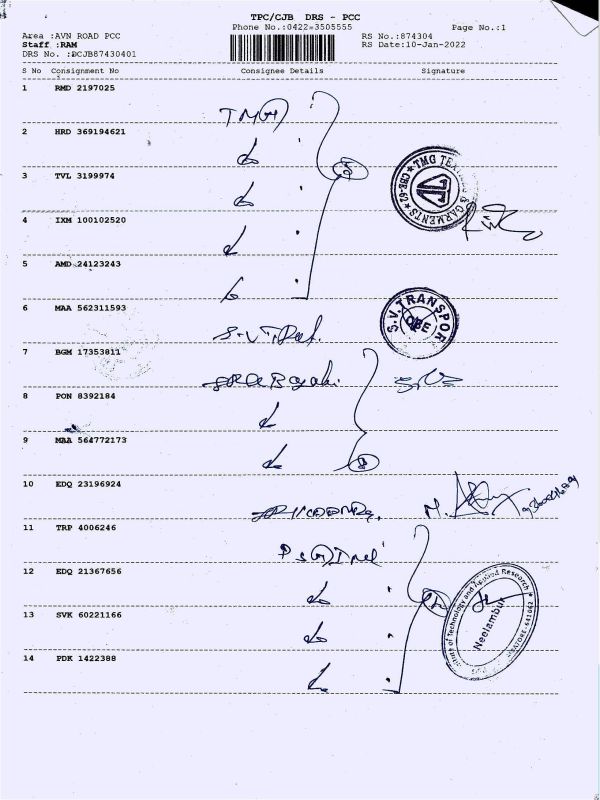 TPC/CJB DRS - PCC
Phone No.:0422-3505555 Page No.:1
Area :AVN ROAD PCC RS No.:874304
Staff :RAM RS Date:10-Jan-2022
DRS No. :DCJB87430401
S No Consignment No Consignee Details Signature
1 RMD 2197025
TMG
2 HRD 369194621
3 TVL 3199974
TMG TEX & GARMENTS CBE-62
4 IXM 100102520
5 AMD 24123243
6 MAA 562311593
S.V.TRANSPOR CBE
S.V T
7 BGM 17353811
8 PON 8392184
9 MAA 564772173
10 EDQ 23196924
M.
11 TRP 4006246
PSG
12 EDQ 21367656
of Technology and Applied Research Neelambur 641062
13 SVK 60221166
14 PDK 1422388